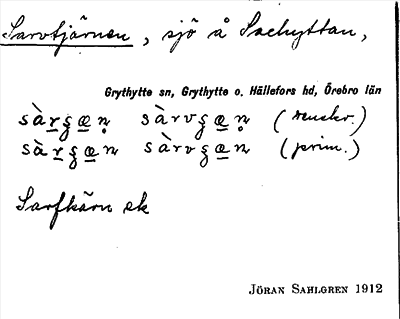 Sarvtjärnen, sjö å Saxhyttan,
Grythytte sn, Grythytte o. Hällefors hd, Örebro län
sàrʂæn sàrvʂæn (renskr.)
sàrʂæn sàrvʂæn (prim.)
Sarfkärn ek
JÖRAN SAHLGREN 1912